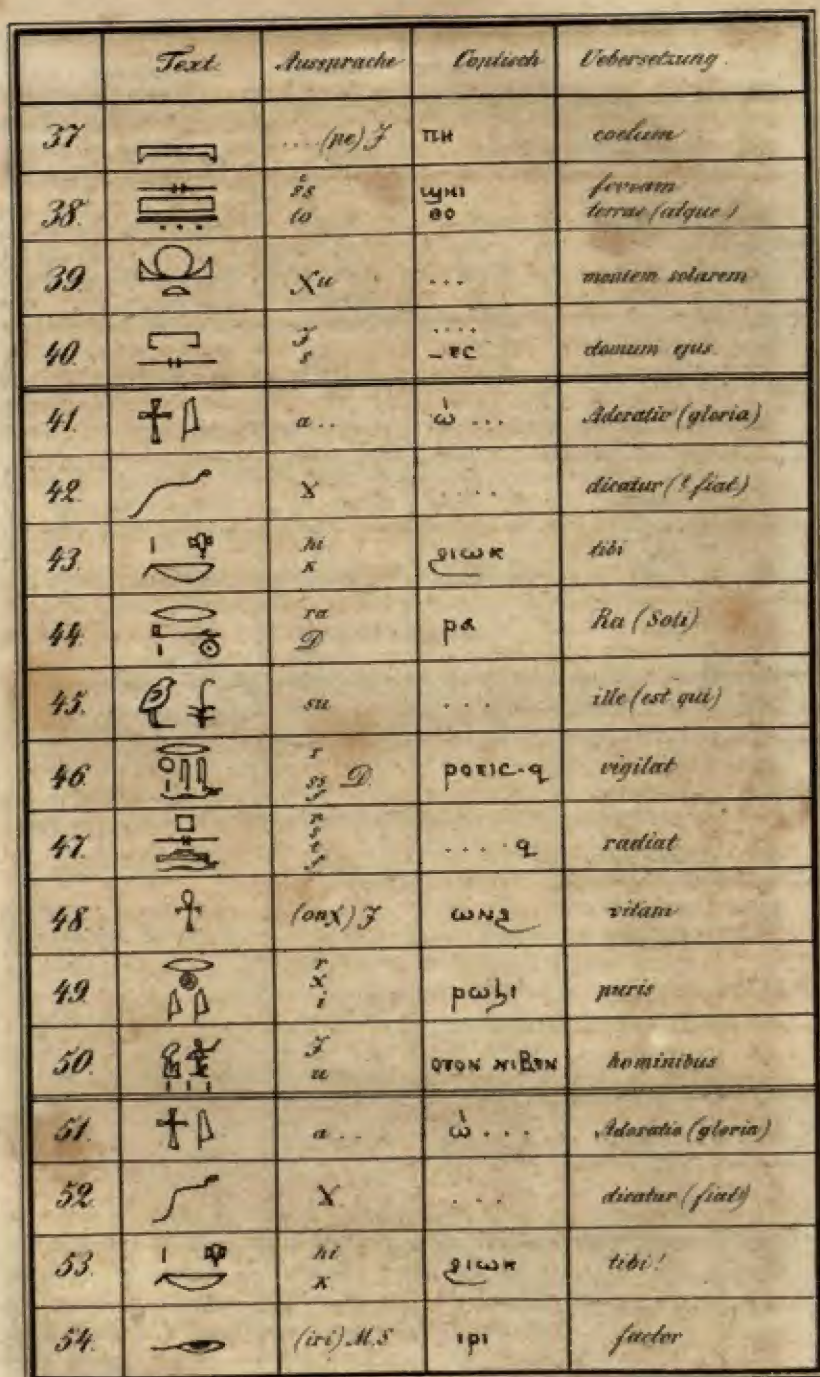 Text. Aussprache Coptisch Uebersetzung.
37 ....(pe) J ⲡⲏ coelum
38. s̓s ϣⲏⲓ ferram
to ⲑⲟ terrae (atque)
39 Xu ... montem solarem
40. J ....
s –ⲉⲥ domum ejus.
41. a.. ὠ ... Adoratio (gloria)
42. X .... dicatur (? fiat)
43. hi
K ϩⲓⲱⲕ tibi
44. ra
D ⲣⲁ Ra (Soli)
45. su ... ille (est qui)
46. r
ss D. ⲣⲟⲉⲓⲥ-ϥ vigilat
47. ....ϥ radiat
48. (onX) J ⲱⲛϩ vitam
49. r
X
i ⲣⲱϧⲓ puris
50. J
u ⲟⲩⲟⲛ ⲛⲓⲃⲉⲛ hominibus
51. a.. ὠ ... Adoratio (gloria)
52. X ... dicatur (fiat)
53. hi
K ϩⲓⲱⲕ tibi!
54. (iri) M.S ⲓⲣⲓ factor